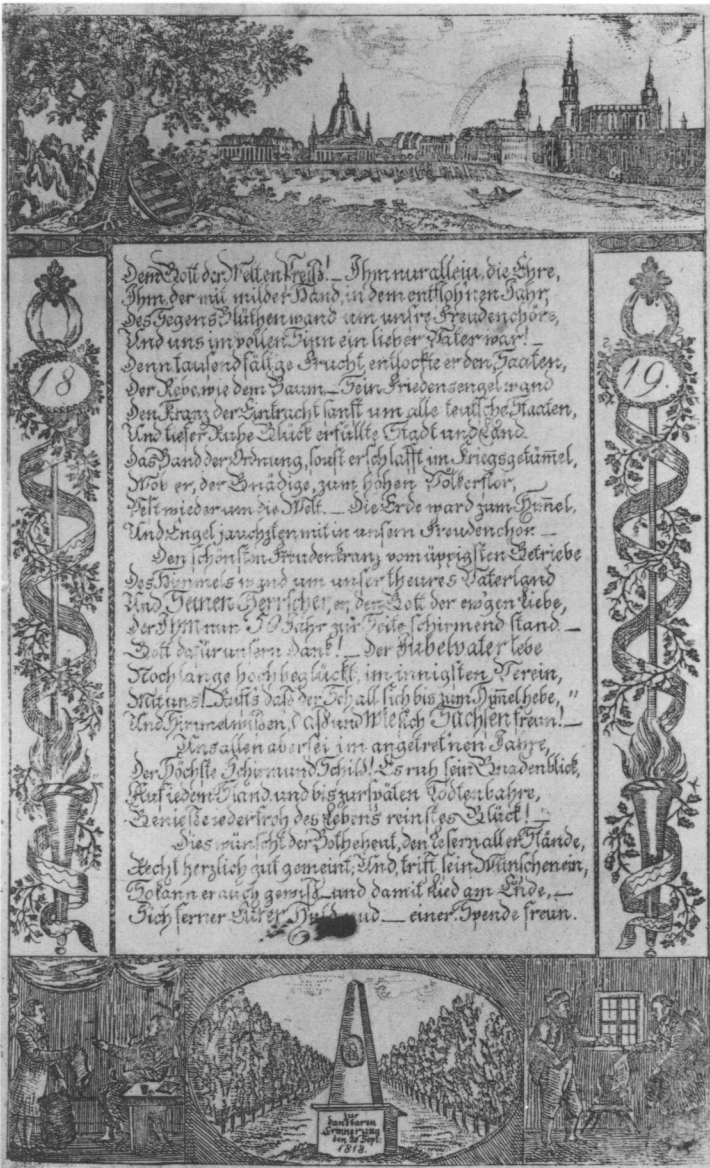 Dem Gott der Welten Preiß! – Ihm nur allein, die Ehre,
Ihm, der mit milder Hand, in dem entfloh'nen Jahr,
Des Segens Blüthen wand um unsre Freudenchöre,
Und uns im vollen Sinn ein lieber Vater war! –
Denn tausendfältge Frucht, entlockte er den Saaten,
Der Rebe, wie dem Baum – Sein Friedensengel wand
Den Kranz der Eintracht sanft um alle teutsche Staaten,
Und tiefer Ruhe Glück erfüllte Stadt und Land.
Das Band der Ordnung, sonst erschlafft im Kriegsgetümmel,
Wob er, der Gnädige, zum hohen Völkerflor,
Fest wieder um die Welt. – Die Erde ward zum Himmel,
Und Engel jauchzten mit in unsern Freudenchor. –
Den schönsten Freudenkranz vom üppigsten Getriebe
Des Himmels wand um unser theures Vaterland
Und Seinen Herrscher, er, den Gott der ew'gen Liebe,
Der Ihm nun 50 Jahr zur Seite schirmend stand. –
Gott dafür unsern Dank! – Der Jubelvater lebe
Noch lange hochbeglückt, im innigsten Verein,
Mit uns! Ruft's daß der Schall sich bis zum Himmel hebe, "
Und Himmel wissen, daß und wie sich Sachsen freun! –
Uns allen aber sei im angetret'nen Jahre,
Der Höchste Schirm und Schild! Es ruh sein Gnadenblick,
Auf jedem Stand, und bis zur späten Todtenbahre,
Genieße jeder froh des Lebens reinstes Glück! –
Dies wünscht der Bothe heut, den Lesern aller Stände,
Recht herzlich gut gemeint, Und, trift sein Wünschen ein,
So kann er auch gewiß – und damit Lied am Ende, –
Sich ferner Eurer Huld und – einer Spende freun.
18
19.
Zur
dankbaren
Erinnerung
den 20 Sept.
1818.